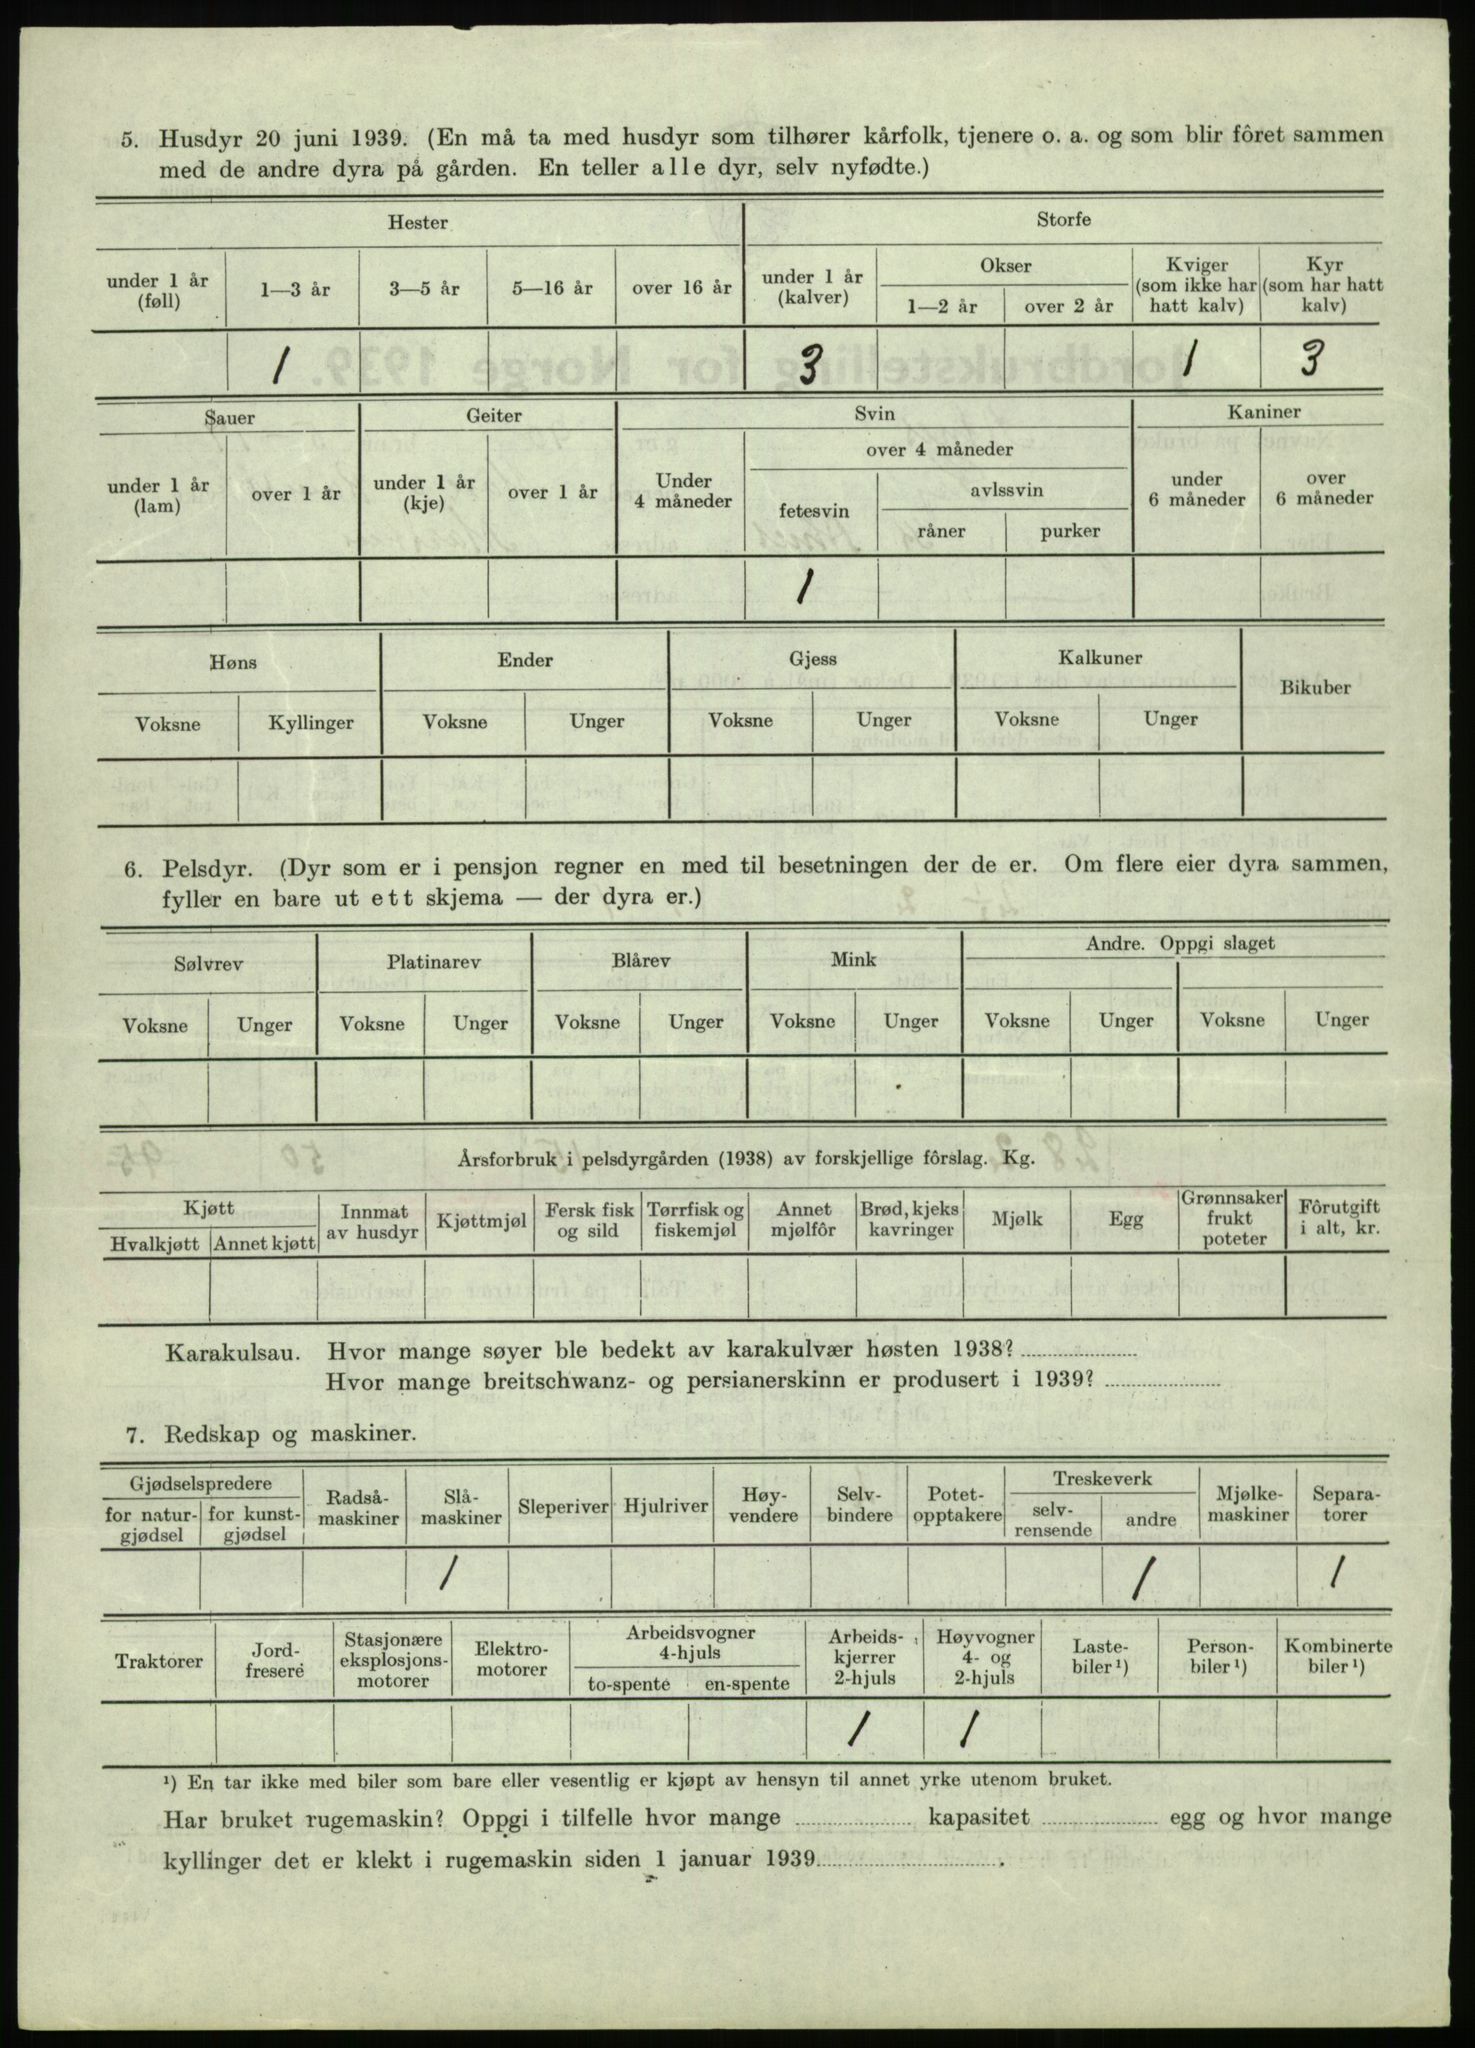 5. Husdyr 20 juni 1939. (En må ta med husdyr som tilhører kårfolk, tjenere o. a. og som blir fôret sammen
med de andre dyra på gården. En teller alle dyr, selv nyfødte.)
Hester Storfe
under 1 år (føll) 1—3 år 3—5 år 5—16 år over 16 år under 1 år (kalver) Okser 1—2 år over 2 år Kviger (som ikke har hatt kalv) Kyr (som har hatt kalv)
1 3 1 3
Sauer Geiter Svin Kaniner
under 1 år (lam) over 1 år under 1 år (kje) over 1 år Under 4 måneder over 4 måneder fetesvin avlssvin råner purker under 6 måneder over 6 måneder
1
Høns Ender Gjess Kalkuner Bikuber
Voksne Kyllinger Voksne Unger Voksne Unger Voksne Unger
6. Pelsdyr. (Dyr som er i pensjon regner en med til besetningen der de er. Om flere eier dyra sammen,
fyller en bare ut ett skjema — der dyra er.)
Sølvrev Platinarev Blårev Mink Andre. Oppgi slaget
Voksne Unger Voksne Unger Voksne Unger Voksne Unger Voksne Unger Voksne Unger
Årsforbruk i pelsdyrgården (1938) av forskjellige fôrslag. Kg.
Kjøtt Hvalkjøtt Annet kjøtt Innmat av husdyr Kjøttmjøl Fersk fisk og sild Tørrfisk og fiskemjøl Annet mjølfôr Brød, kjeks kavringer Mjølk Egg Grønnsaker frukt poteter Fôrutgift i alt, kr.
Karakulsau. Hvor mange søyer ble bedekt av karakulvær høsten 1938?
Hvor mange breitschwanz- og persianerskinn er produsert i 1939?
7. Redskap og maskiner.
Gjødselspredere for natur-gjødsel for kunst-gjødsel Radså-maskiner Slå-maskiner Sleperiver Hjulriver Høy-vendere Selv-bindere Potet-opptakere Treskeverk selv-rensende andre Mjølke-maskiner Separa-torer
1 1 1
Traktorer Jord-fresere Stasjonære eksplosjons-motorer Elektro-motorer Arbeidsvogner 4-hjuls to-spente en-spente Arbeids-kjerrer 2-hjuls Høyvogner 4- og 2-hjuls Laste-biler ¹) Person-biler ¹) Kombinerte biler ¹)
1 1
¹) En tar ikke med biler som bare eller vesentlig er kjøpt av hensyn til annet yrke utenom bruket.
Har bruket rugemaskin? Oppgi i tilfelle hvor mange kapasitet egg og hvor mange
kyllinger det er klekt i rugemaskin siden 1 januar 1939.